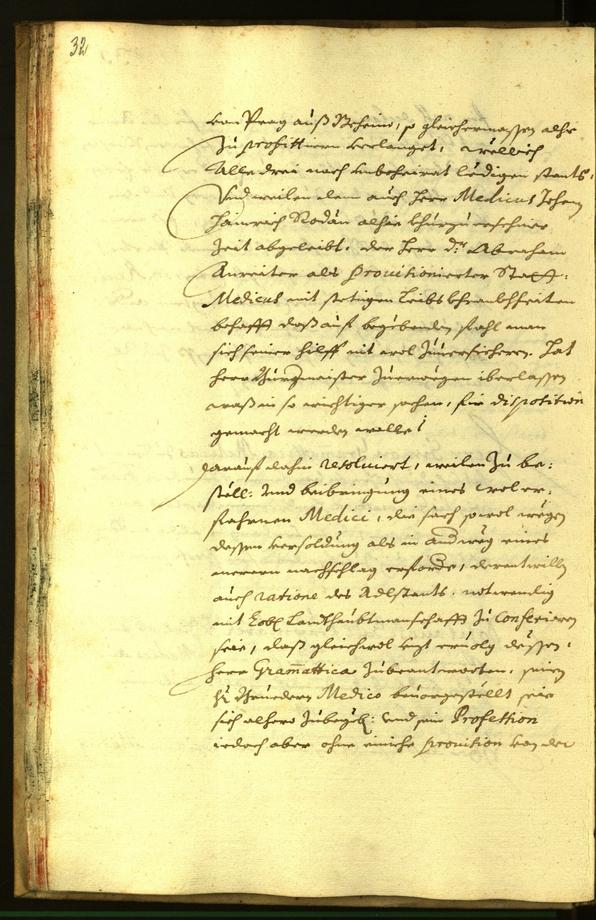 32
von Prag auß Beheimb, so gleichermassen alhie
zu profitiern verlanget, wellich
Alle drei noch unbeheirat ledigen stants,
Und weilen dann auch Herr Medicus Johann
Hainrich Rodan alhie khurz
Zeit abgeleibt. der Herr Dr Abraham
Anreiter als provitionierter Statt-
Medicus mit stetigen Leibs khrankhheiten
behafft daß auf begebenden fahl man
sich seiner hilff nit wol zuversichern. Hat
herr Burgmeister zuerwegen iberlassen
was in so wichtiger sachen, für disposition
gemacht werden wolle?
Darauf dahin resolviert, weilen zu be-
stell: und beibringung eines wol er-
fahrnen Medici, die sach sowol wegen
dessen besoldung als in andweg eines
merern nachschlag erfordre, derentwillen
auch ratione des Adlstants. notwendig
mit Lobl Landthaubtmanschafft zu conferieren
seie, daß gleichwol
herr Grammattica zubeantworten, seinen
Medico bevorgestellt seie
sich alhero zubegeb: und sein Profession
iedoch aber ohne einiche provition von der